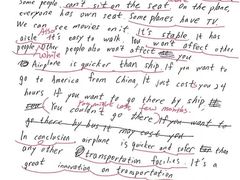 Some people can't sit on the seat. On the plane,
everyone has own seat. Some planes have TV.
We can see movies on it. Also It's stable It has
aisle It's easy to walk. You won't affect other
people. Other people also won't affect you
Airplane is quicker than ship. If you want to go
to America from China, It just costs you 24
hours. If you want to go there by ship
You couldn't go there Pay might cost few months. If you want to
go there by bus it may cost yea
In conclusion, airplane is quicker and safer than
any other transportation facilies. It's a
great innovation on transportation